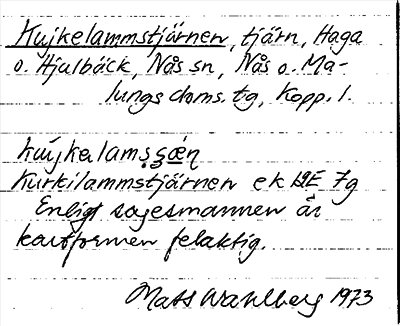 Kujkelammstjärnen, tjärn, Haga
o. Hjulbäck, Nås sn, Nås o. Ma-
lungs doms. tg, Kopp. l.
Kurkilammstjärnen ek 12E 7g
Enligt sagesmannen är
kartformen felaktig.
Mats Wahlberg 1973